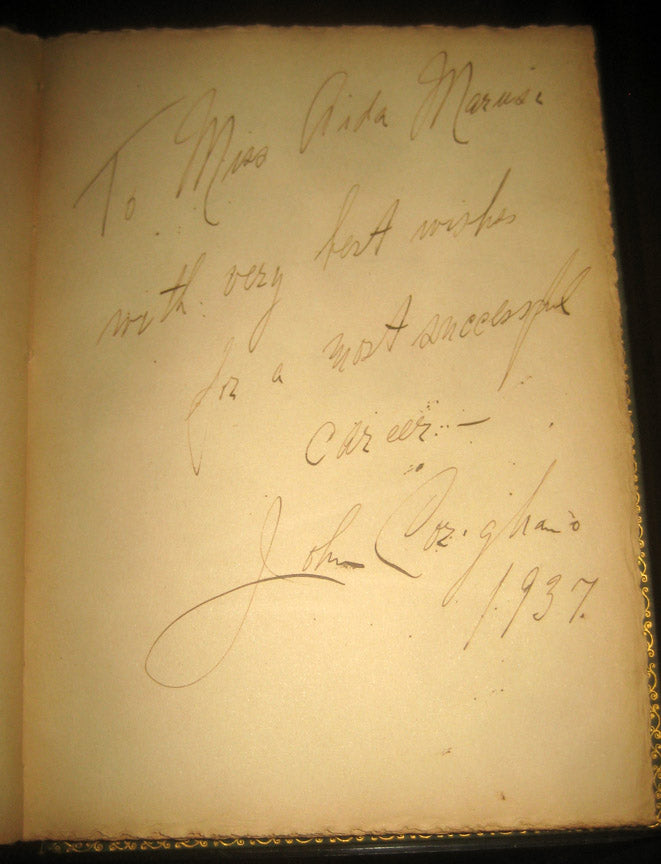 To Miss Aida Marusi
with very best wishes
for a most successful
career —
John Corigliano
1937.